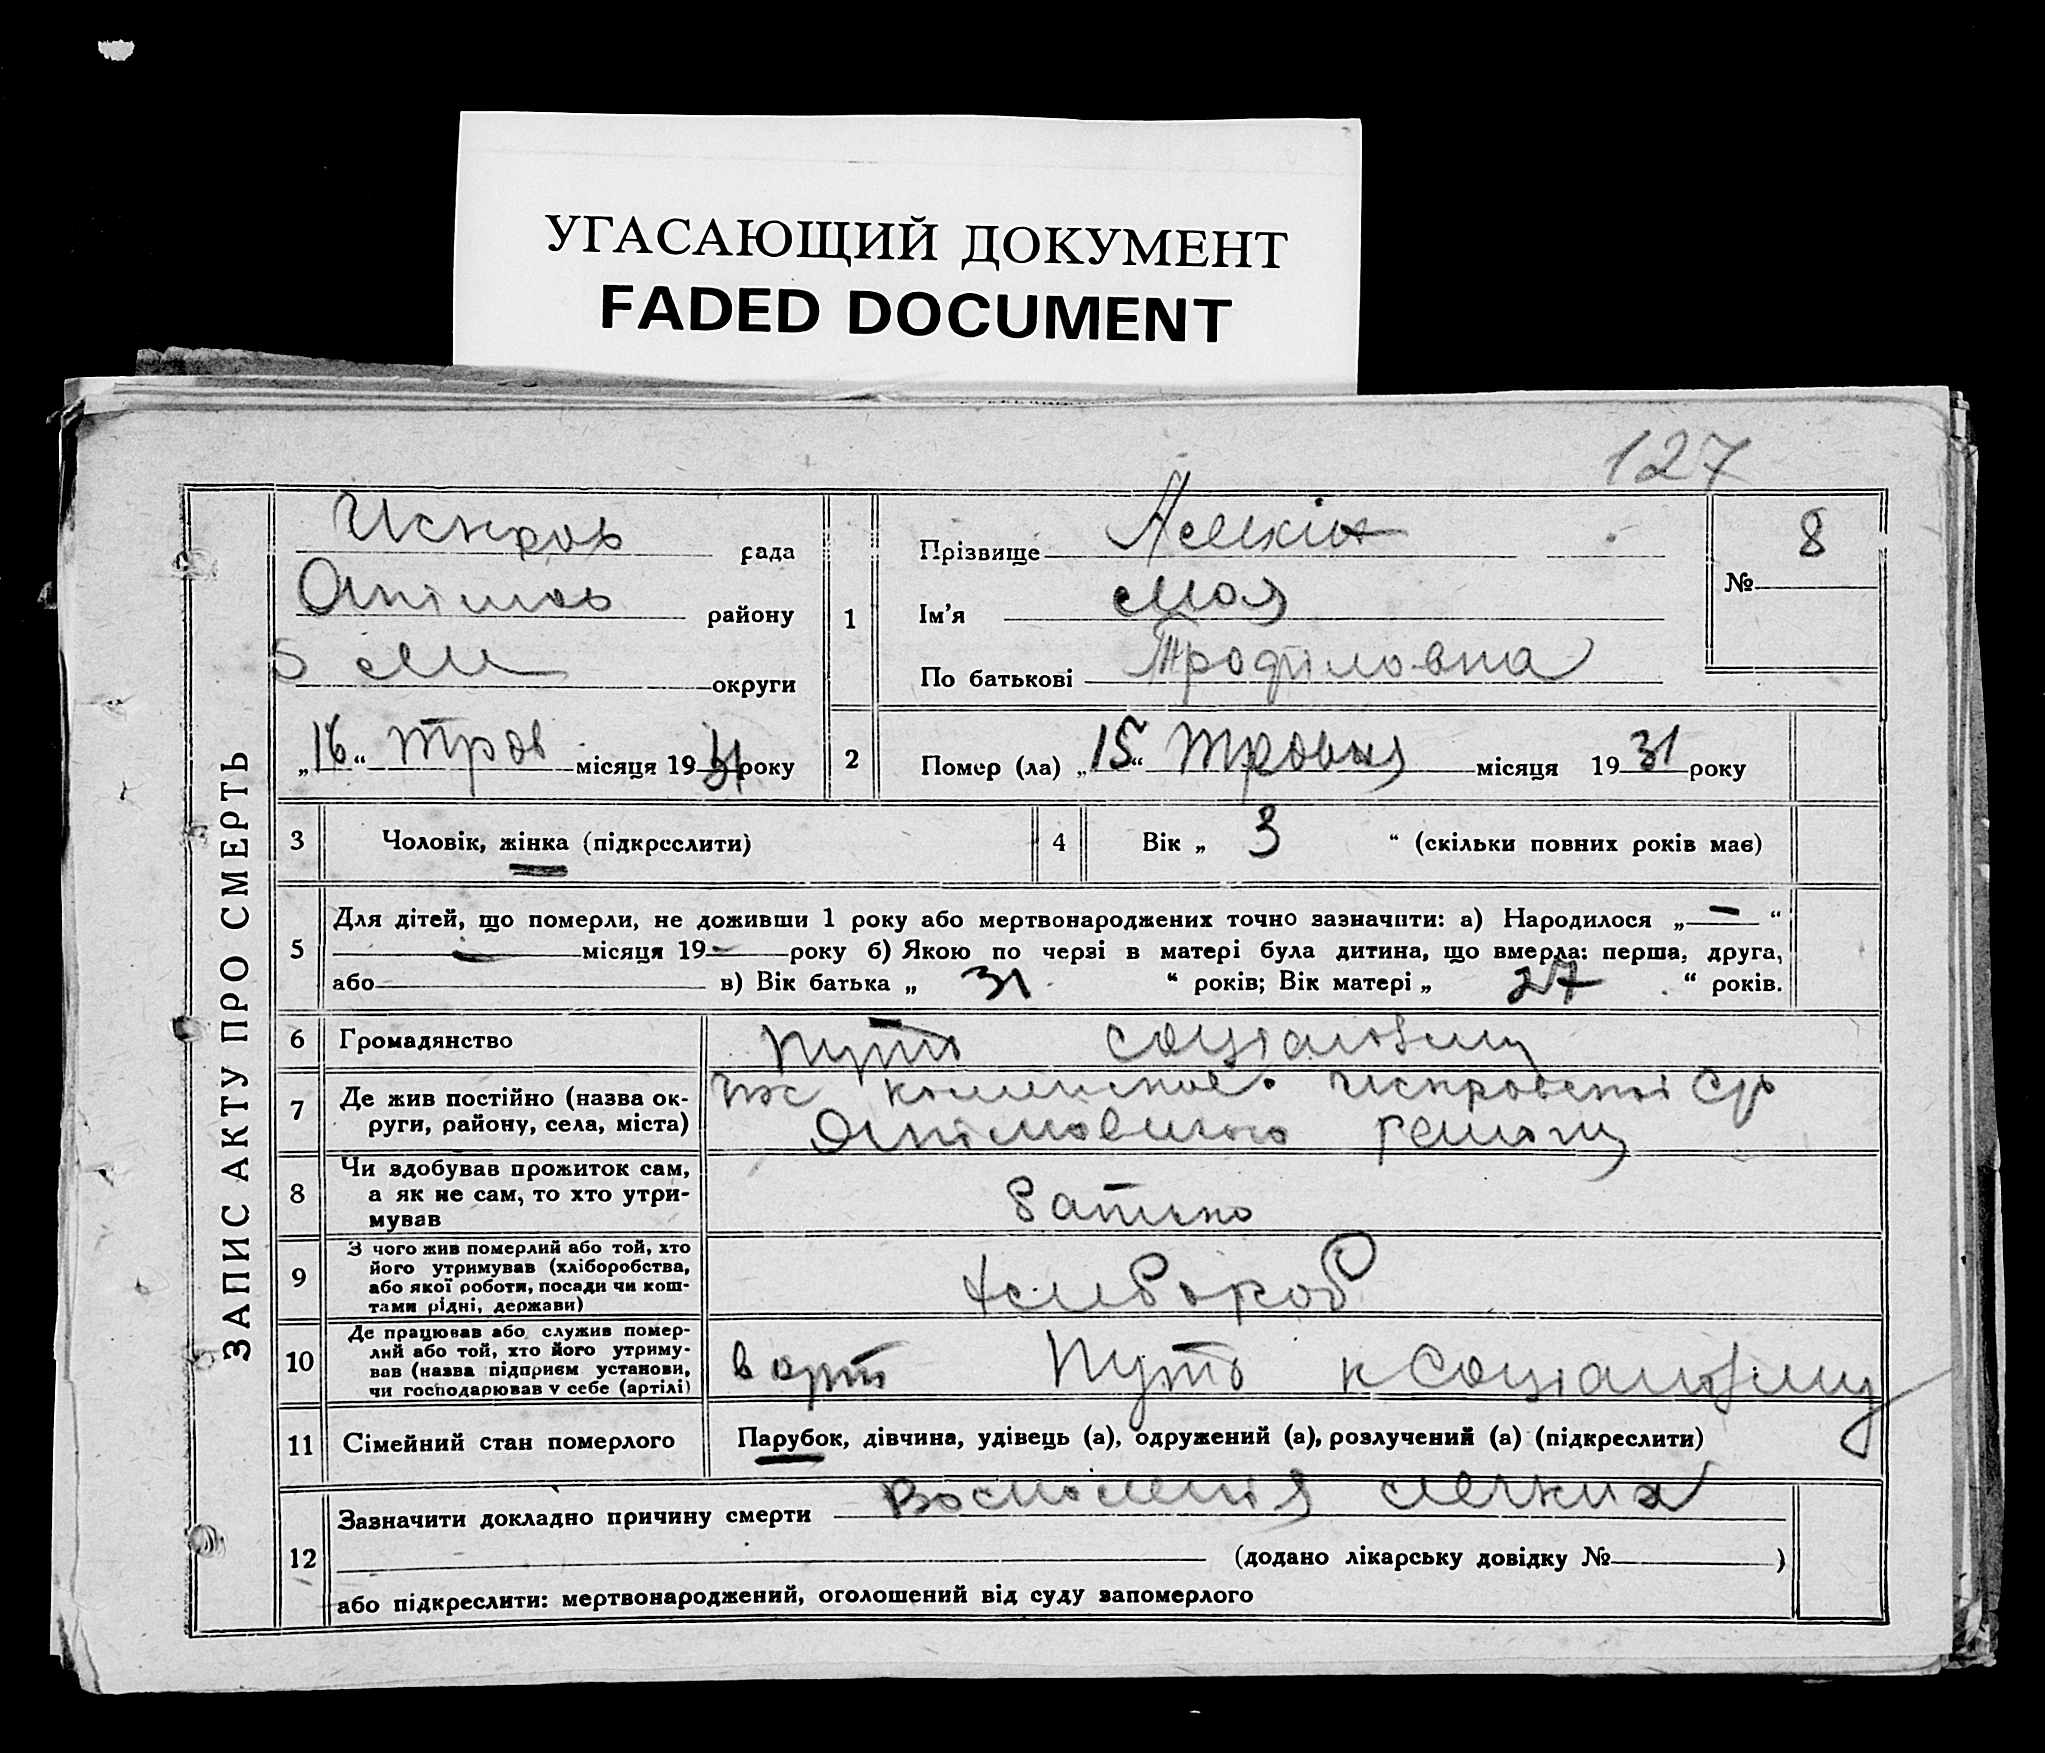 УГАСАЮЩИЙ ДОКУМЕНТ
FADED DOCUMENT
127
ЗАПИС АКТУ ПРО СМЕРТЬ
Искров рада
району
округи
„16“ трав місяця 1931 року
1
Прізвище
Ім’я
По батькові Трофіловна
№ 8
2
Помер (ла) „15“ травня місяця 1931 року
3
Чоловік, жінка (підкреслити)
4
Вік „ 3 “ (скільки повних років має)
5
Для дітей, що померли, не доживши 1 року або мертвонароджених точно зазначити: а) Народилося „—“
— місяця 19— року б) Якою по черзі в матері була дитина, що вмерла: перша, друга,
або в) Вік батька „ 31 “ років; Вік матері „ 27 “ років.
6
Громадянство
Путь соціалізму
7
Де жив постійно (назва ок-
руги, району, села, міста)
Искровской
8
Чи здобував прожиток сам,
а як не сам, то хто утри-
мував
батько
9
З чого жив померлий або той, хто
його утримував (хліборобства,
або якої роботи, посади чи кош-
тами рідні, держави)
хлібороб
10
Де працював або служив помер-
лий або той, хто його утриму-
вав (назва підприєм установи,
чи господарював у себе (артілі)
в арт Путь к Соціалізму
11
Сімейний стан померлого
Парубок, дівчина, удівець (а), одружений (а), розлучений (а) (підкреслити)
12
Зазначити докладно причину смерти легких
(додано лікарську довідку № )
або підкреслити: мертвонароджений, оголошений від суду запомерлого